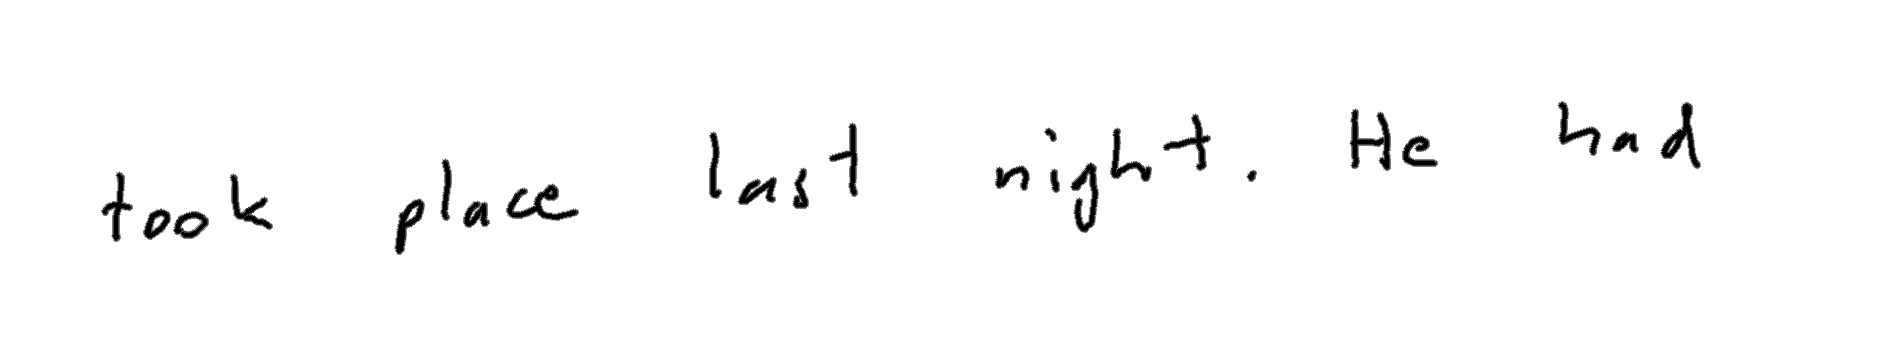 took place last night. He had